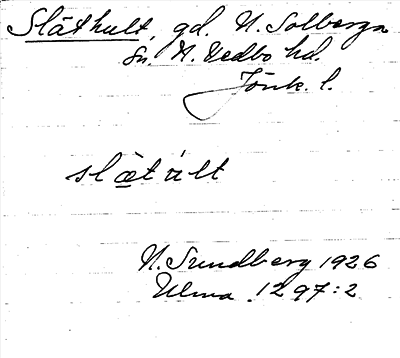 Släthult, gd. N. Solberga
sn. N. Vedbo hd.
Jönk. l.
slætùlt
N. Sundberg 1926
Ulma 1297:2